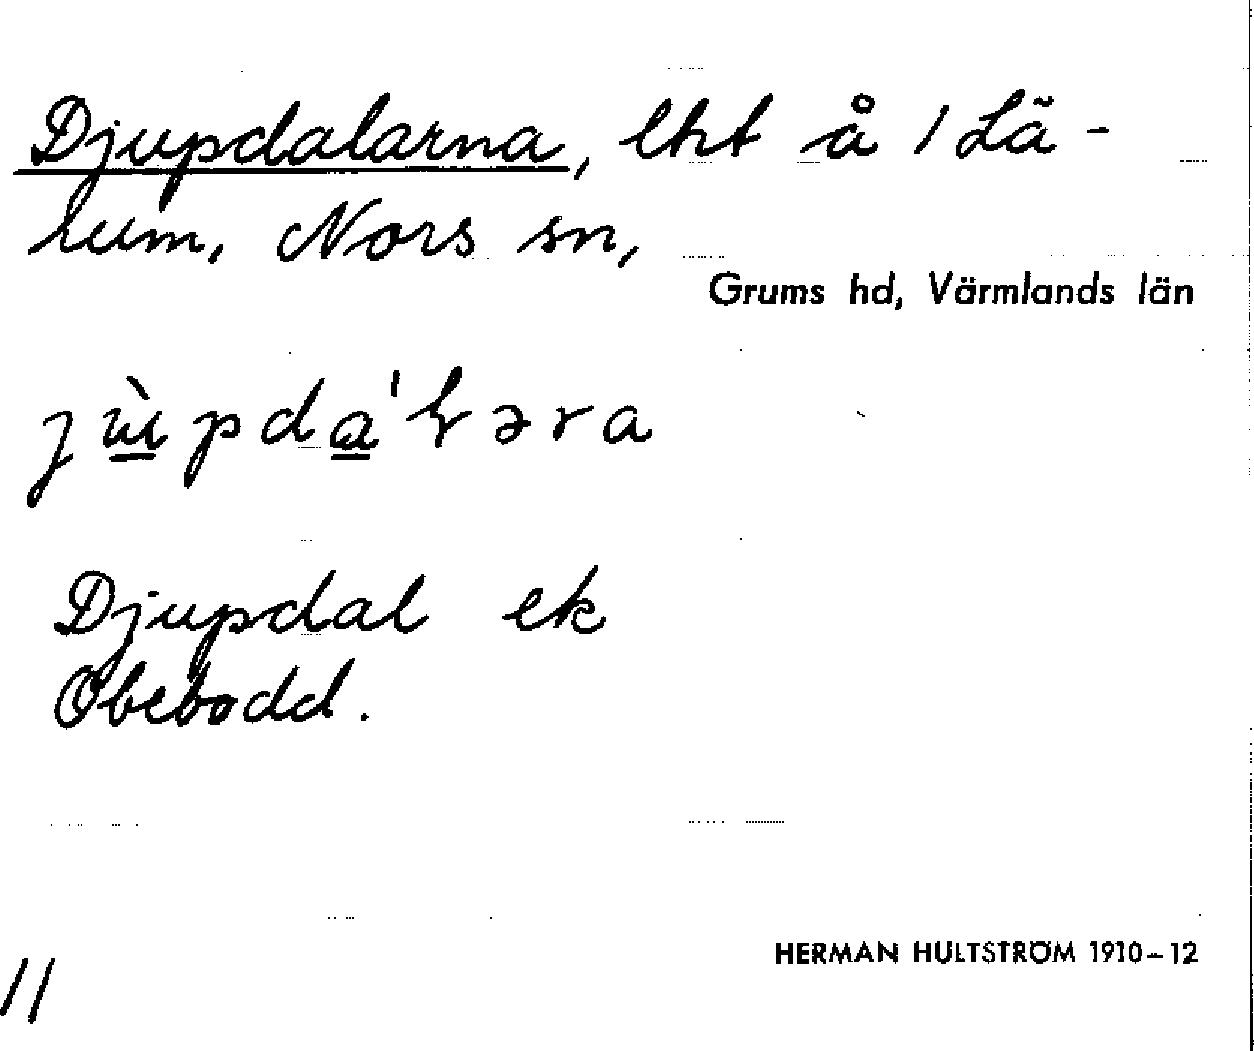 Djupdalarna, lht å 1 Lä-
rum, Nors sn,
Grums hd, Värmlands län
Djupdal ek
Obebodd.
HERMAN HULTSTRÖM 1910–12
11